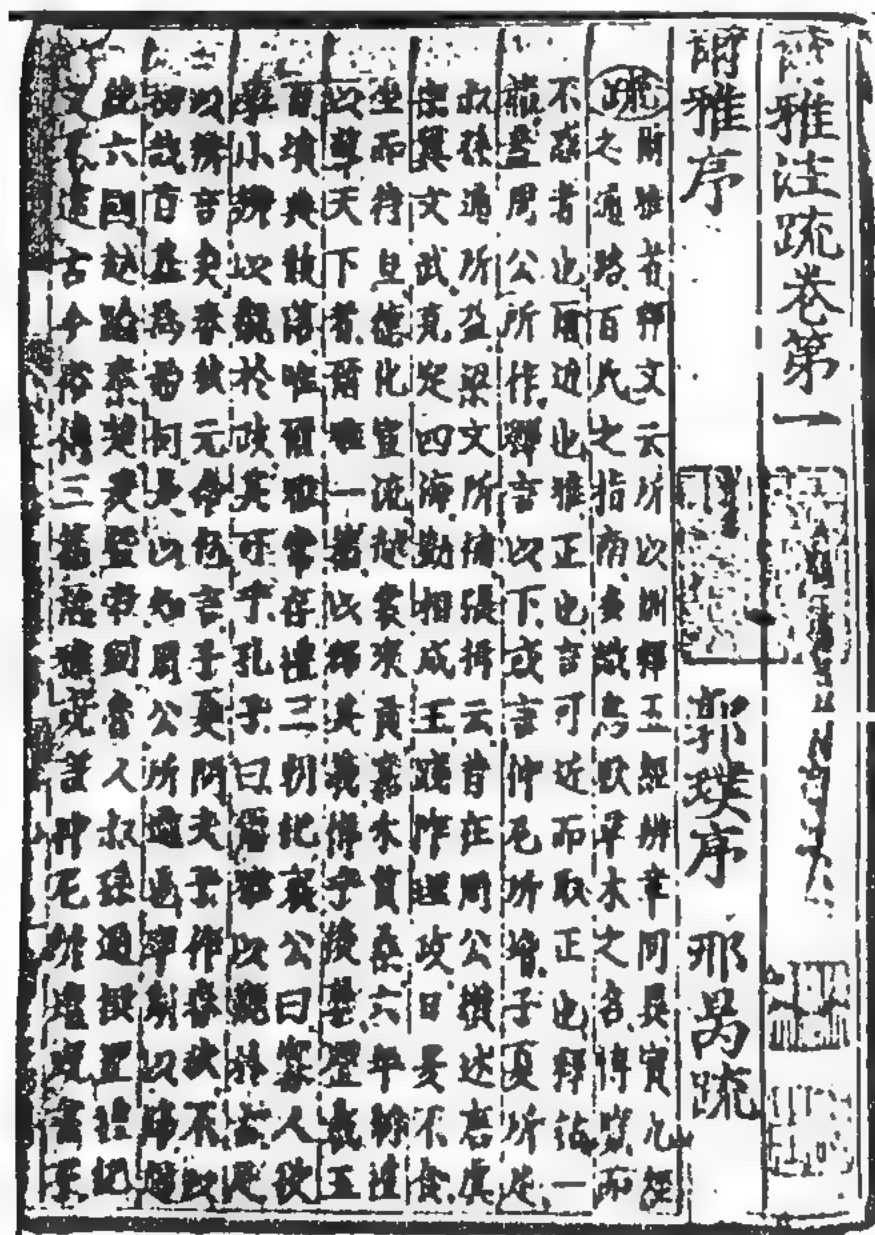 爾雅注疏卷第一
爾雅序 郭璞序 邢昺疏
疏爾雅者釋文云所以訓釋五經辨章同異實九經
之通路百氏之指南多識鳥獸草木之名博覽而
不惑者也爾近也雅正也言可近而取正也釋詁一
篇蓋周公所作釋言以下或言仲尼所增子夏所足
叔孫通所益梁文所補張揖云昔在周公纘述唐虞
宗翼文武克定四海勤相成王踐阼理政日昃不食
坐而待旦德化宣流越裳來貢嘉禾貫桑六年制禮
以導天下著爾雅一篇以釋其義傳乎後嗣歷載五
百墳典散落唯爾雅常存禮三朝記哀公曰寡人欲
學小辨以觀於政其可乎孔子曰爾雅以觀於古足
以辨言矣春秋元命包言子夏問夫子作春秋不以
初哉首基為始何是以知周公所造也率斯以降超
絕六國越踰秦楚爰暨帝劉魯人叔孫通撰置禮記
文不違古今俗傳三篇或言仲尼